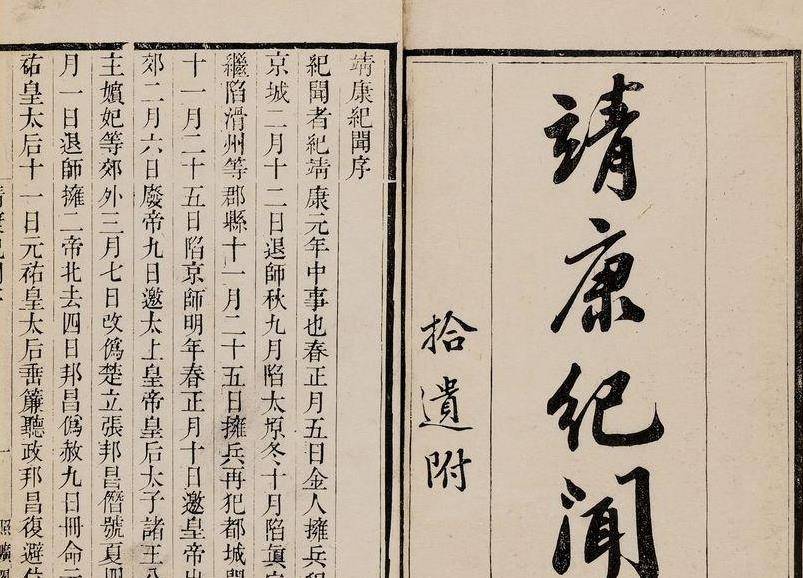 靖康紀聞
拾遺附
靖康紀聞序
紀聞者紀靖康元年中事也春正月五日金人擁兵
京城二月十二日退師秋九月陷太原冬十月陷眞
繼陷滑州等郡縣十一月二十五日擁兵再犯都城閏
十一月二十五日陷京師明年春正月十日邀皇帝出
郊二月六日廢帝九日邀太上皇帝皇后太子諸王
主嬪妃等郊外三月七日改僞楚立張邦昌僭號夏四
月一日退師擁二帝北去四日邦昌僞赦九日冊命元
祐皇太后十一日元祐皇太后垂簾聽政邦昌復避位